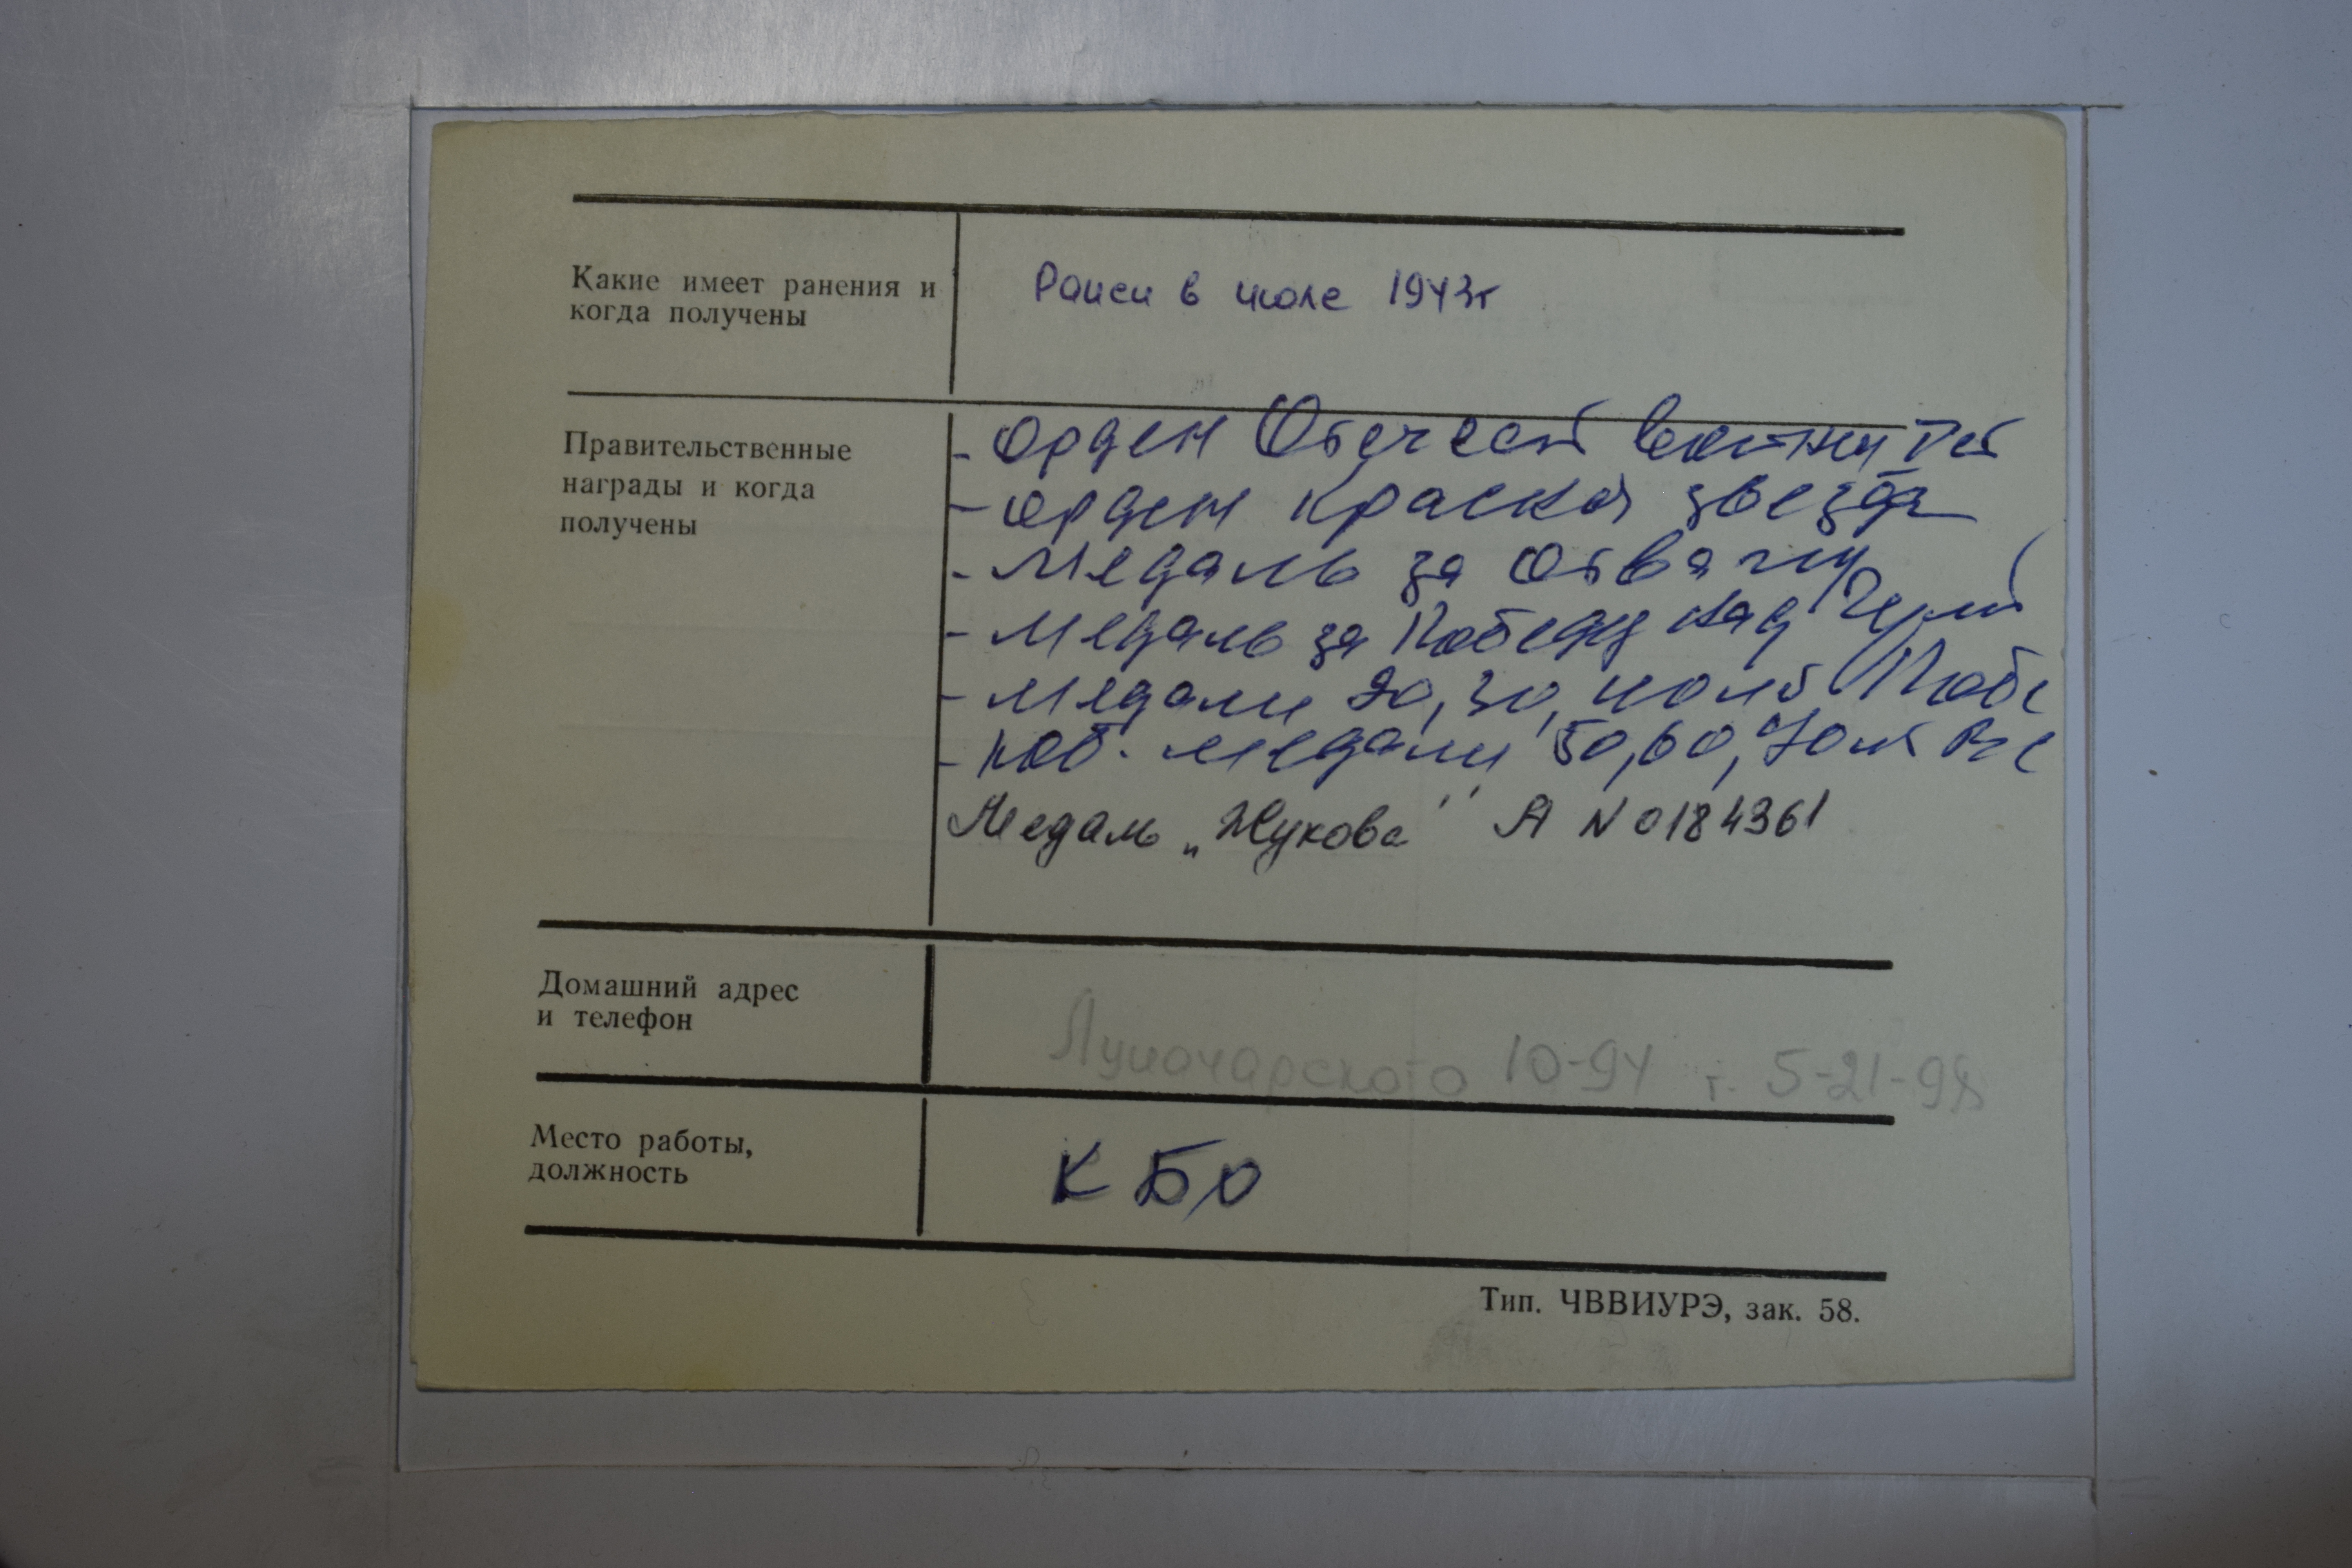 Какие имеет ранения и
когда получены
Ранен в июле 1943г
Правительственные
награды и когда
получены
- Орден Отечест войны
- Орден Красной звезды
- Медаль за Отвагу
- Медаль за Победу над Герм
- Медали 20, 30, 40 лет Побе
- Юб. медали 50, 60, 70 л
Медаль „Жукова" А N 0184361
Домашний адрес
и телефон
Луночарского 10-94 т. 5-21-98
Место работы,
должность
К БО
Тип. ЧВВИУРЭ, зак. 58.